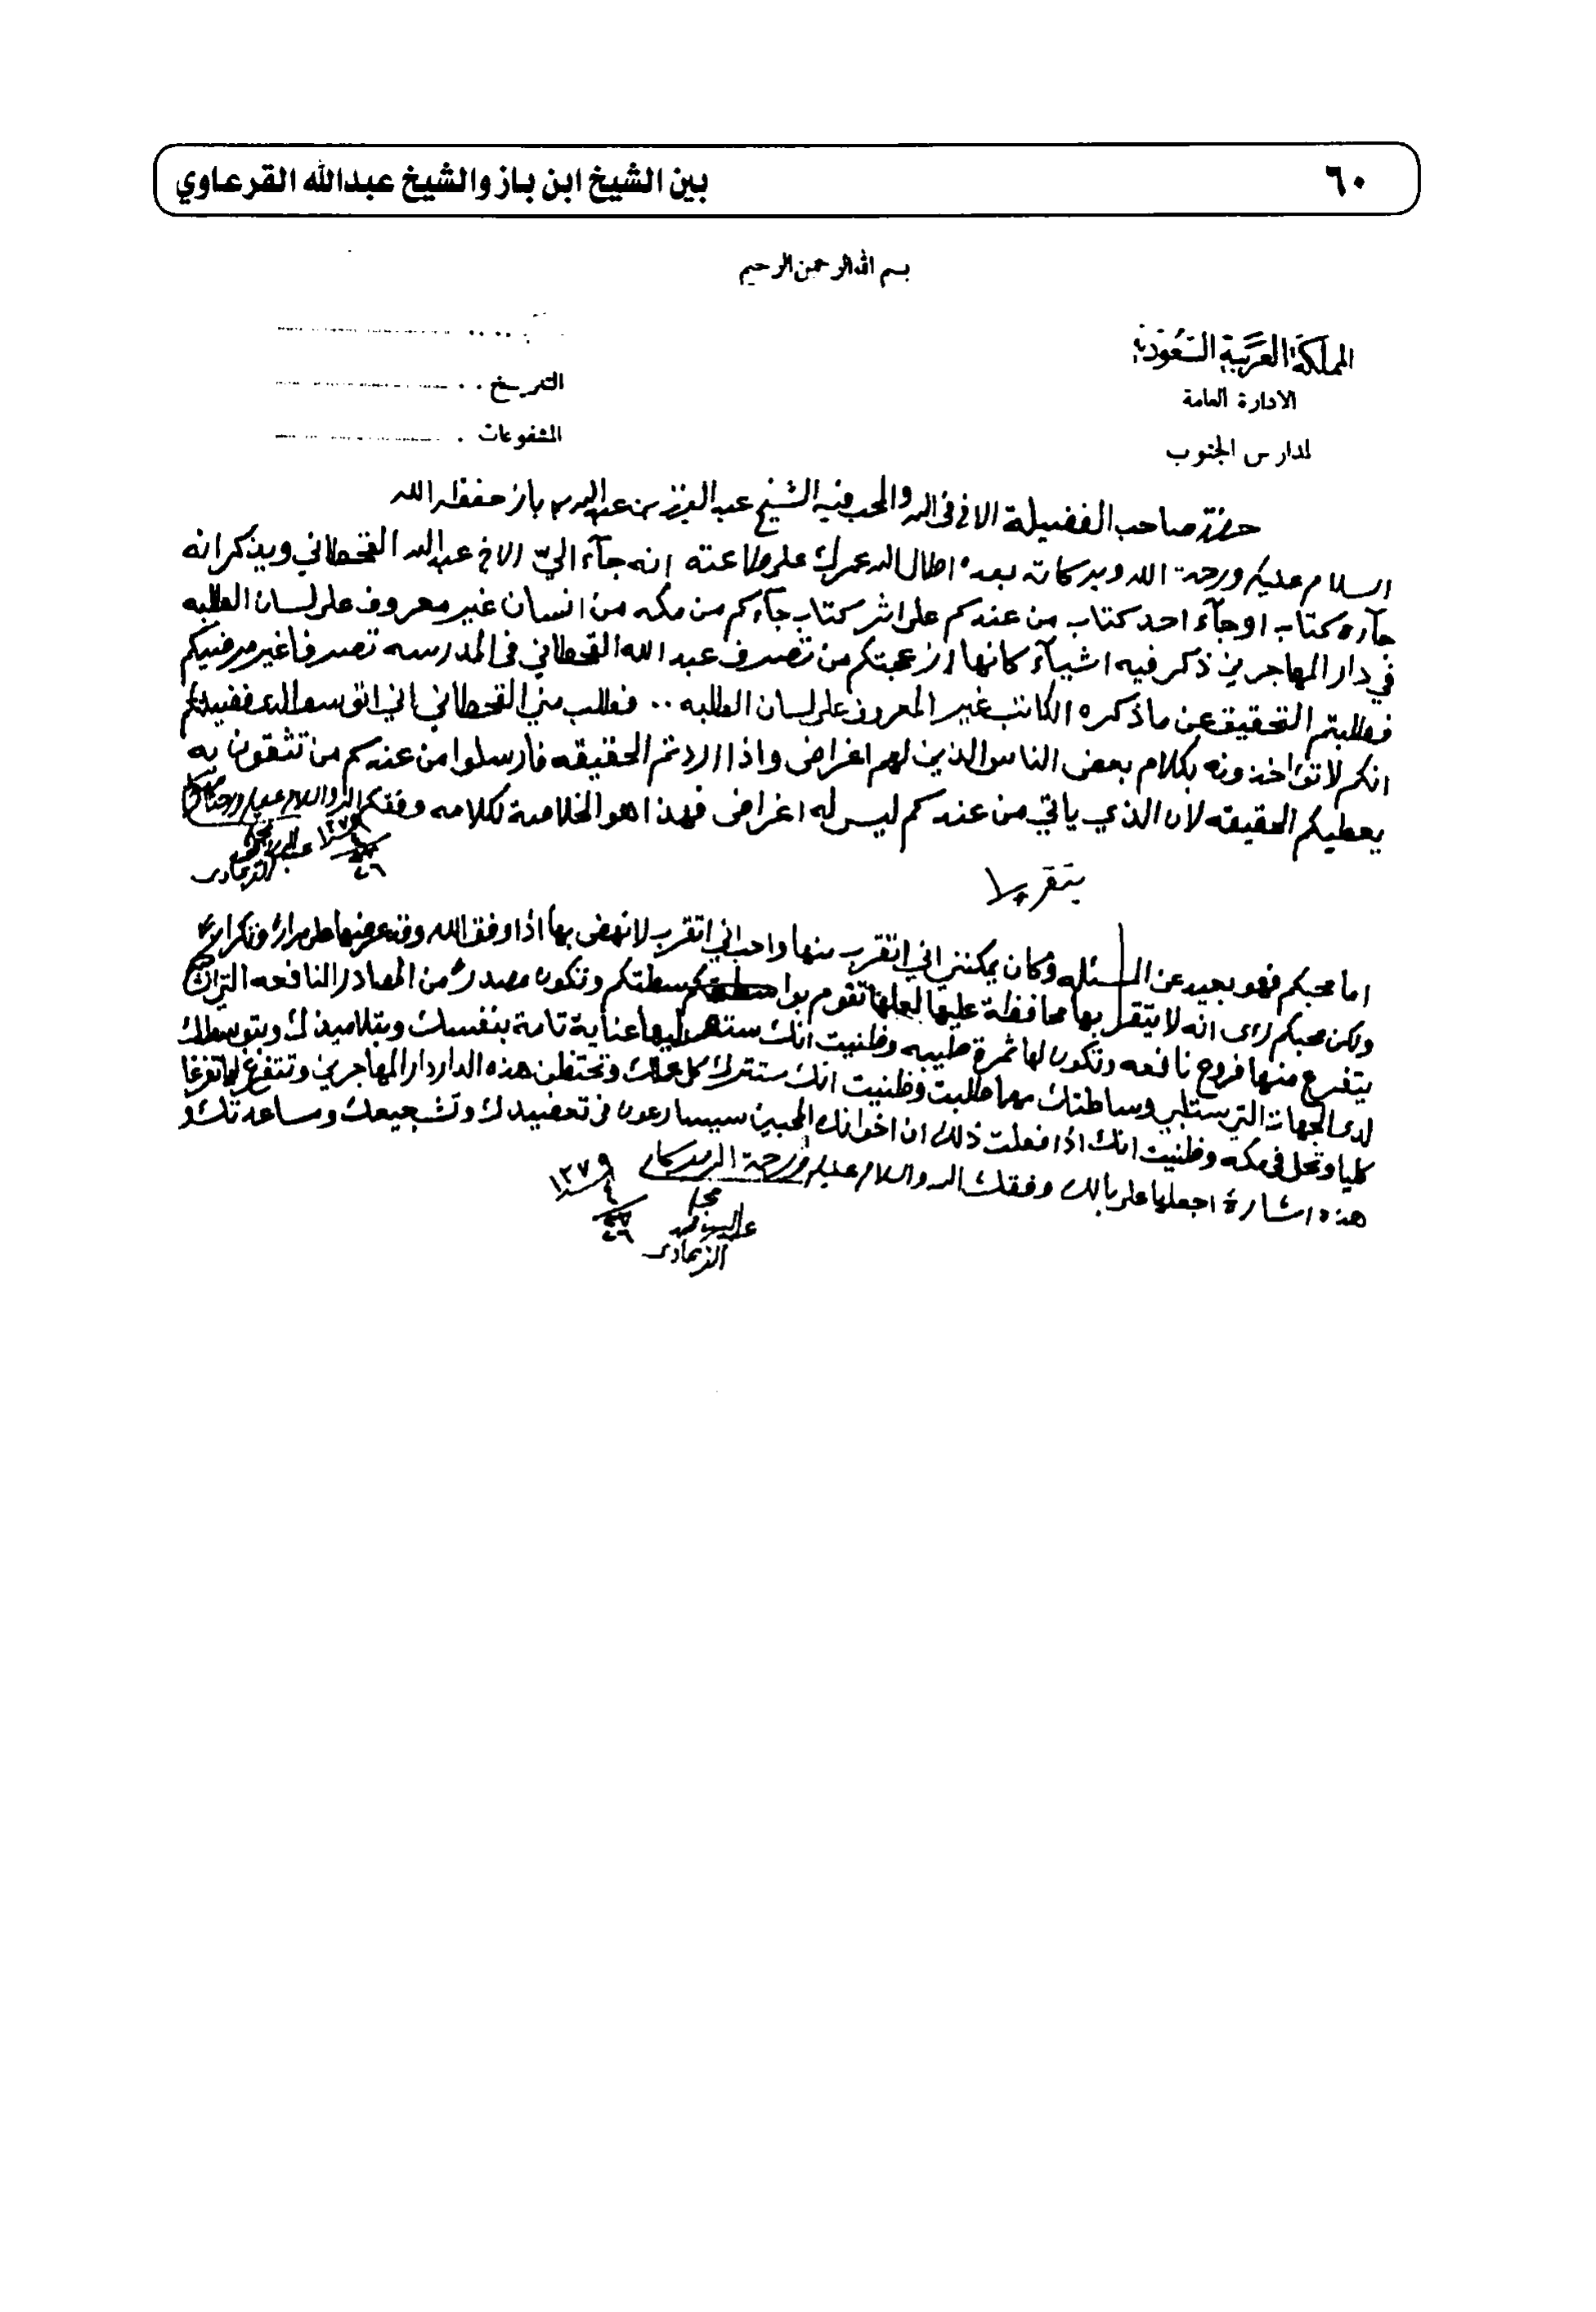 ٦٠
بين الشيخ ابن باز والشيخ عبدالله القرعاوي
بسم الله الرحمن الرحيم
المملكة العربية السعودية
الادارة العامة
لمدارس الجنوب
التاريخ
المشفوعات
حضرة صاحب الفضيلة الاخ في الله والمحب فيه الشيخ عبد العزيز بن عبدالله بن باز حفظه الله
السلام عليكم ورحمة الله وبركاته بعده اطال الله عمرك على طاعته انه جآء اليّ الاخ عبدالله القحطاني ويذكر انه
جآره كتاب اوجآء احد كتاب من عندكم على اثر كتاب جآءكم من مكه من انسان غير معروف على لسان الطلبه
في دار المهاجرين ذكر فيه اشيآء كانها ازعجتكم من تصرف عبد الله القحطاني في المدرسه تصرفا غير مرضيكم
فطلبتم التحقيق عن ماذكره الكاتب غير المعروف على لسان الطلبه .. فطلب مني القحطاني اني اتوسط لدى فضيلتكم
انكم لاتؤاخذونه بكلام بعض الناس الذين لهم اغراض واذا اردتم الحقيقه فارسلوا من عندكم من تثقون به
يعطيكم الحقيقه لان الذي ياتي من عندكم ليس له اغراض فهذا هو الخلاصة لكلامه وفقكم الله والسلام عليكم ورحمة
١٣٧٩
٤
٢٦
القرعاوي
اما محبكم فهو بعيد عن المسئله وكان يمكنني اني اتقرب منها واحب اني اتقرب لانهض بها اذا وفق الله وقد عرضها علي مرارا وتكرارا
ولكن محبكم رأى انه لا يتقرب بها محافظة عليها لعلها تقوم بواسطتكم وتكون مصدرا من المصادر النافعه التي
يتفرع منها فروع نافعه وتكون لها ثمرة طيبه وظنيت انك ستعتني بها عناية تامة بنفسك وبتلاميذك وبتوسطك
لدى الجهات التي ستلبي وساطتك مهما طلبت وظنيت انك ستترك كل عملك وتحتضن هذه الدار دار المهاجرين وتتفرغ لها تفرغا
كليا وتحل في مكه وظنيت انك اذا فعلت ذلك ان اخوانك المحبين سيسارعون في تعضيدك وتشجيعك ومساعدتك
هذه اشارة اجعلها على بالك وفقك الله والسلام عليكم ورحمة الله وبركاته
١٣٧٩
٤
٢٦
محبكم
عبدالله بن محمد
القرعاوي